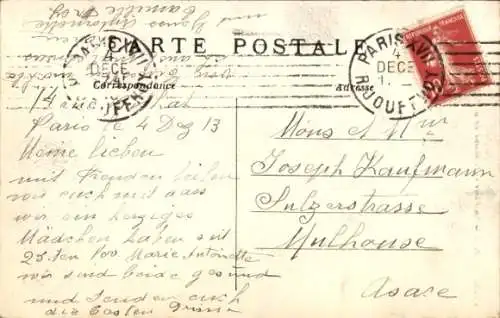 CARTE POSTALE
Correspondance
Adresse
PARIS XVII
4
DECE
R. JOUFFROY
DECE
REPUBLIQUE FRANÇAISE
Paris le 4 Dez 13
Meine lieben
mit Freuden teilen
wir euch mit dass
wir ein herziges
Mädchen haben seit
25 ten Nov. Marie Antoinette
wir sind beide gesund
und senden euch
die besten Grüsse
Mons et Mme
Joseph Kaufmann
Sulzerstrasse
Mulhouse
Alsace